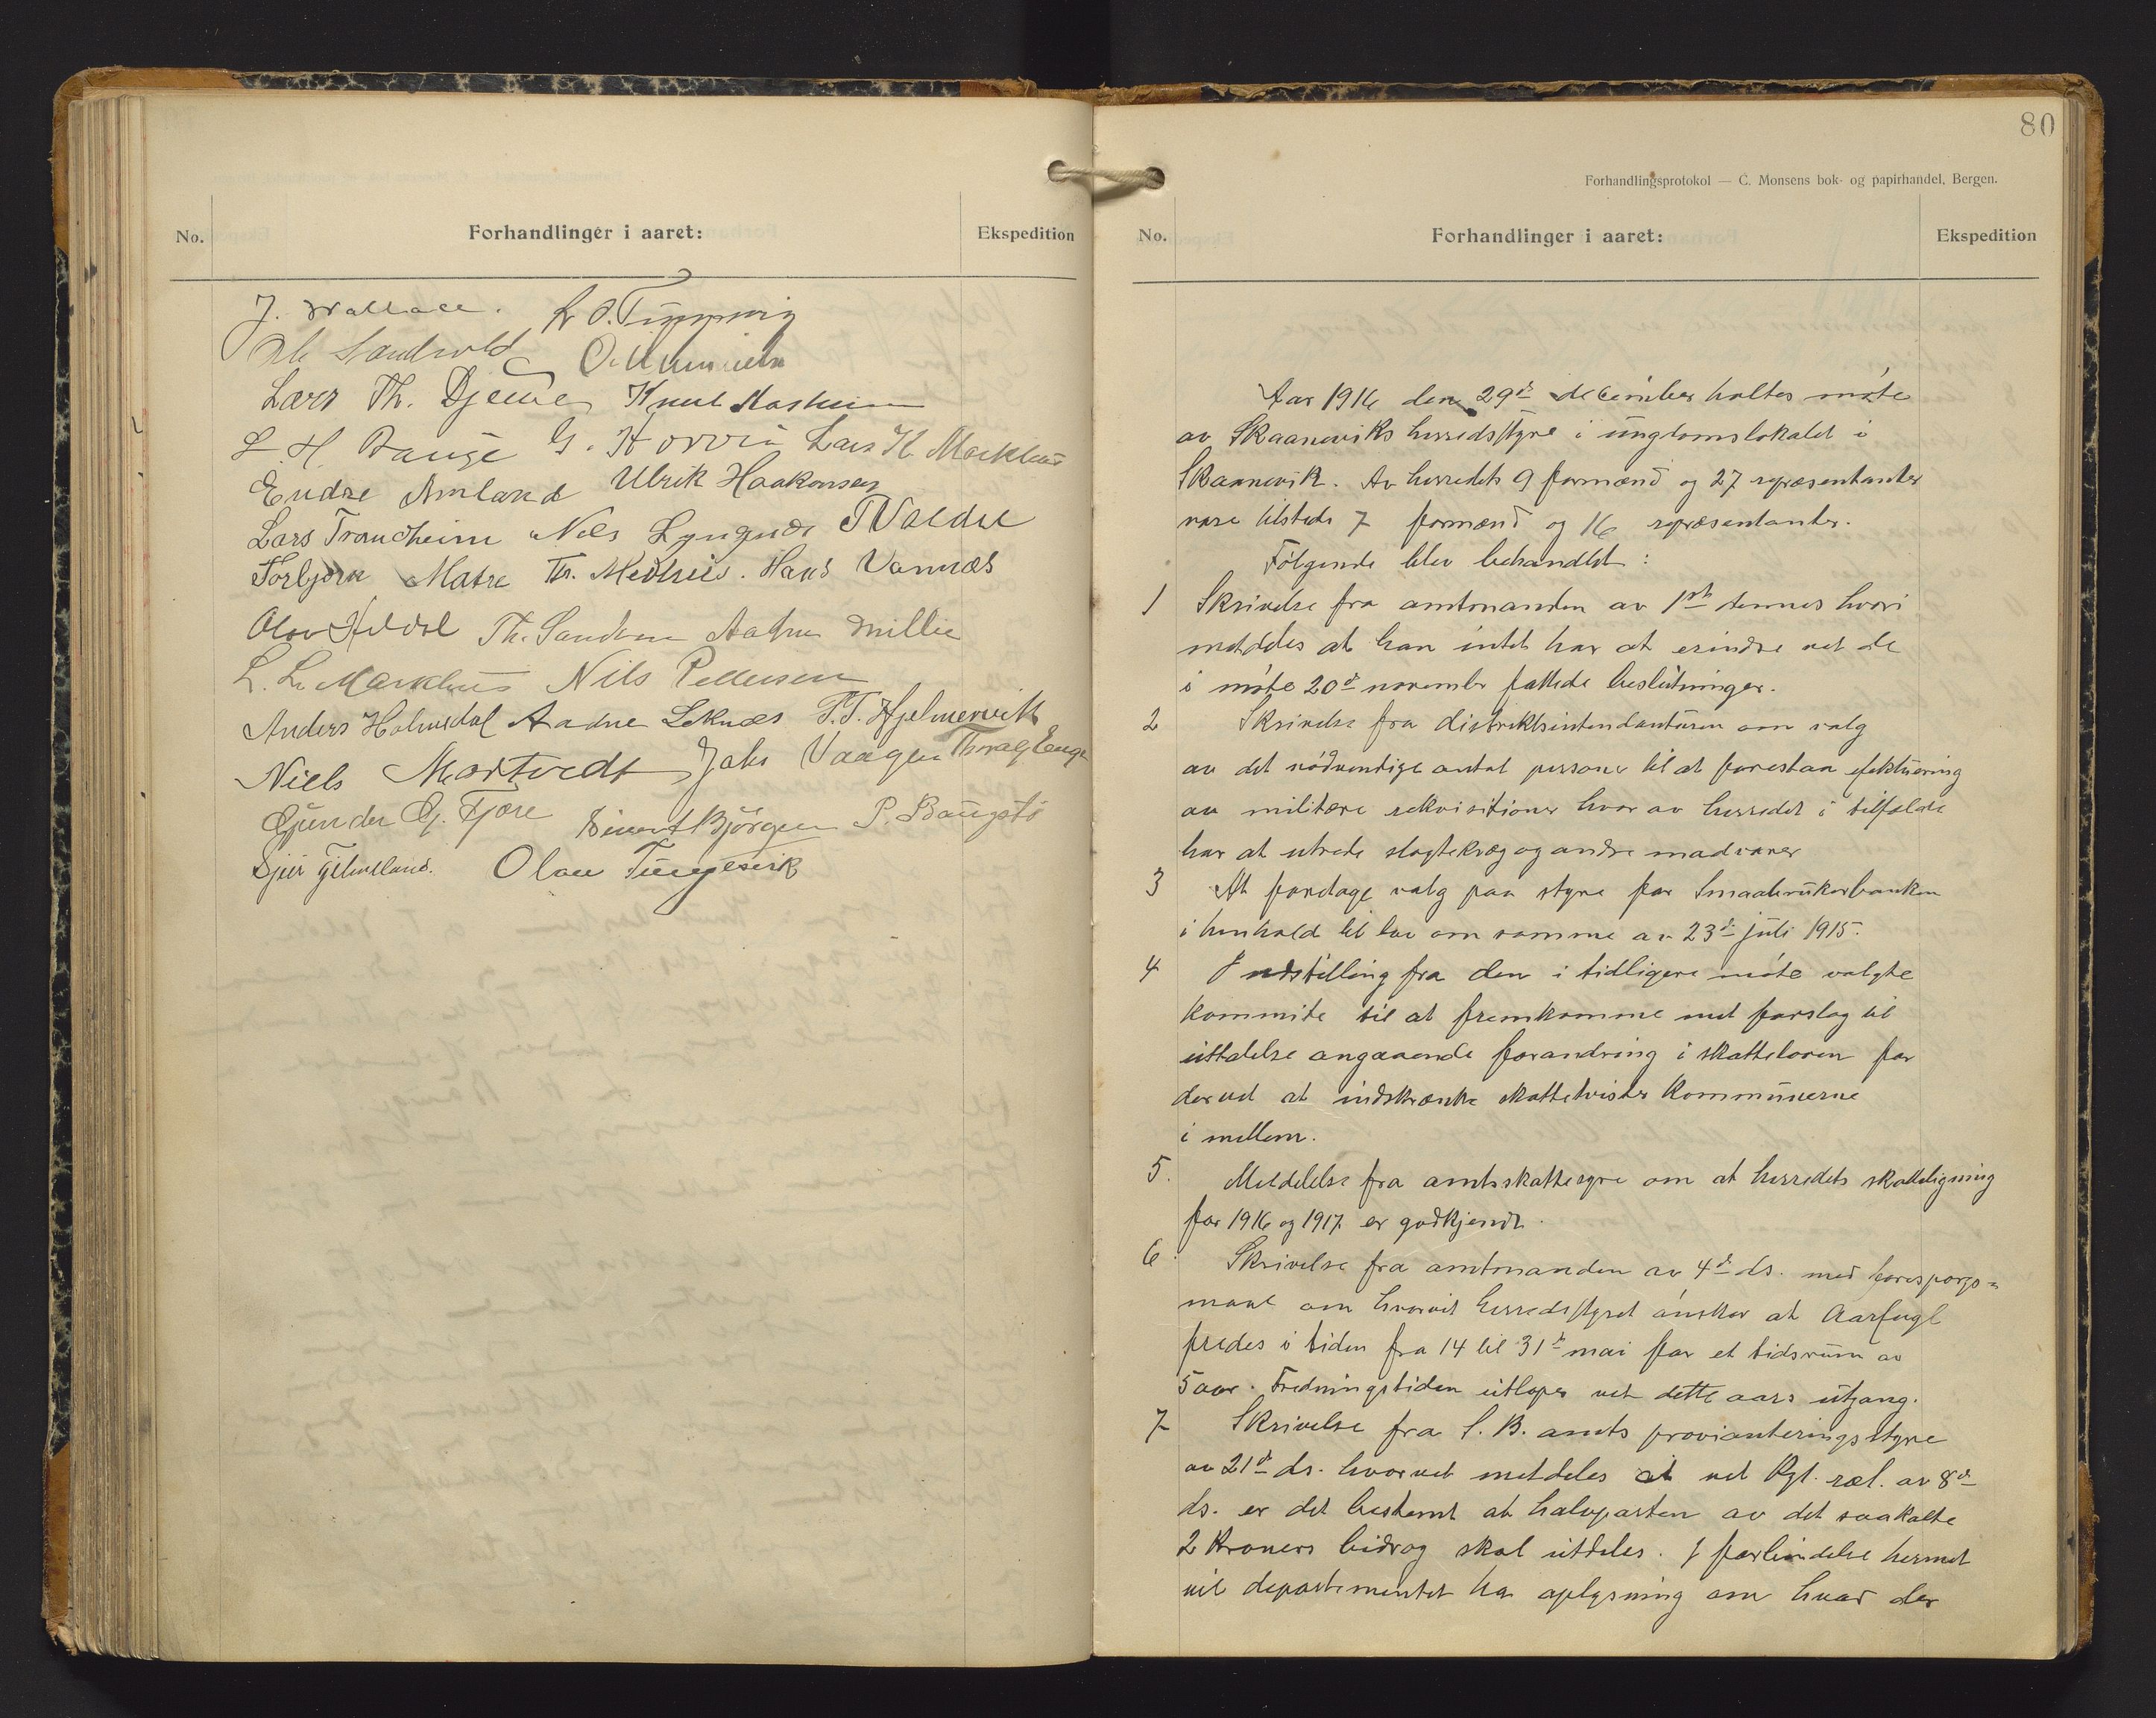 No.
Forhandlinger i aaret:
Ekspedition
J. Wallace.
Ole Sandvold
Lars Th. Djeue Knut Aasheim
L. H. Bauge G. Horvei Lars K. Markhus
Endre Amland Ulrik Haakonsen
Lars Traaeheim Nils Lyngnes T Valdel
Torbjørn Matre Th. Medhus. Hans Vannæs
Olav Heddel Th. Sandene Aadne Millie
L. L. Markhus Nils Pettersen
Anders Holmedal Aadne Leknæs P. T. Hjelmervik
Niels Mortvedt Jahs Vaagen Thorolf Enge
Gunder G. Fjøre Sivert Bjørgen P. Baugstø
Sjur Fjelland. Olav Tungesvik
80
Forhandlingsprotokol — C. Monsens bok- og papirhandel, Bergen.
No.
Forhandlinger i aaret:
Ekspedition
Aar 1916 den 29de december holtes møte
av Skaaneviks herredsstyre i ungdomslokalet i
Skaanevik. Av herredets 9 formænd og 27 repræsentanter
vare tilstede 7 formænd og 16 repræsentanter.
Følgende blev behandlet:
1 Skrivelse fra amtmanden av 1ste dennes hvori
meddeles at han intet har at erindre vet de
i møte 20de november fattede beslutninger.
2 Skrivelse fra distriktsintendanturen om valg
av det nødvendige antal personer til at forestaa efektuering
av militære rekvisitioner hvor av herredet i tilfælde
har at utrede slagtekvæg og andre madvarer
3 At foredage valg paa styre for Smaabrukerbanken
i henhold til lov om samme av 23de juli 1915.
4 Indstilling fra den i tidligere møte valgte
kommite til at fremkomme met forslag til
uttalelse angaaende forandring i skatteloven for
dervet at indskrænke skattetvister kommunerne
i mellem.
5. Meddelelse fra amtsskattesyre om at herredets skatteligning
for 1916 og 1917 er godkjendt.
6 Skrivelse fra amtmanden av 4de ds. med forespørgs=
maal om hvorvit herredsstyret ønsker at Aarfugl
fredes i tiden fra 14 til 31te mai for et tidsrum av
5 aar. Fredningstiden utløper vet dette aars utgang.
7 Skrivelse fra S. B. amts provianteringsstyre
av 21de ds. hvorvet meddeles at vet Kgl. ræl. av 8de
ds. er det bestemt at halvparten av det saakalte
2 Kroners bidrag skal utdeles. I forbindelse hermet
vil departementet ha oplysning om hvad der